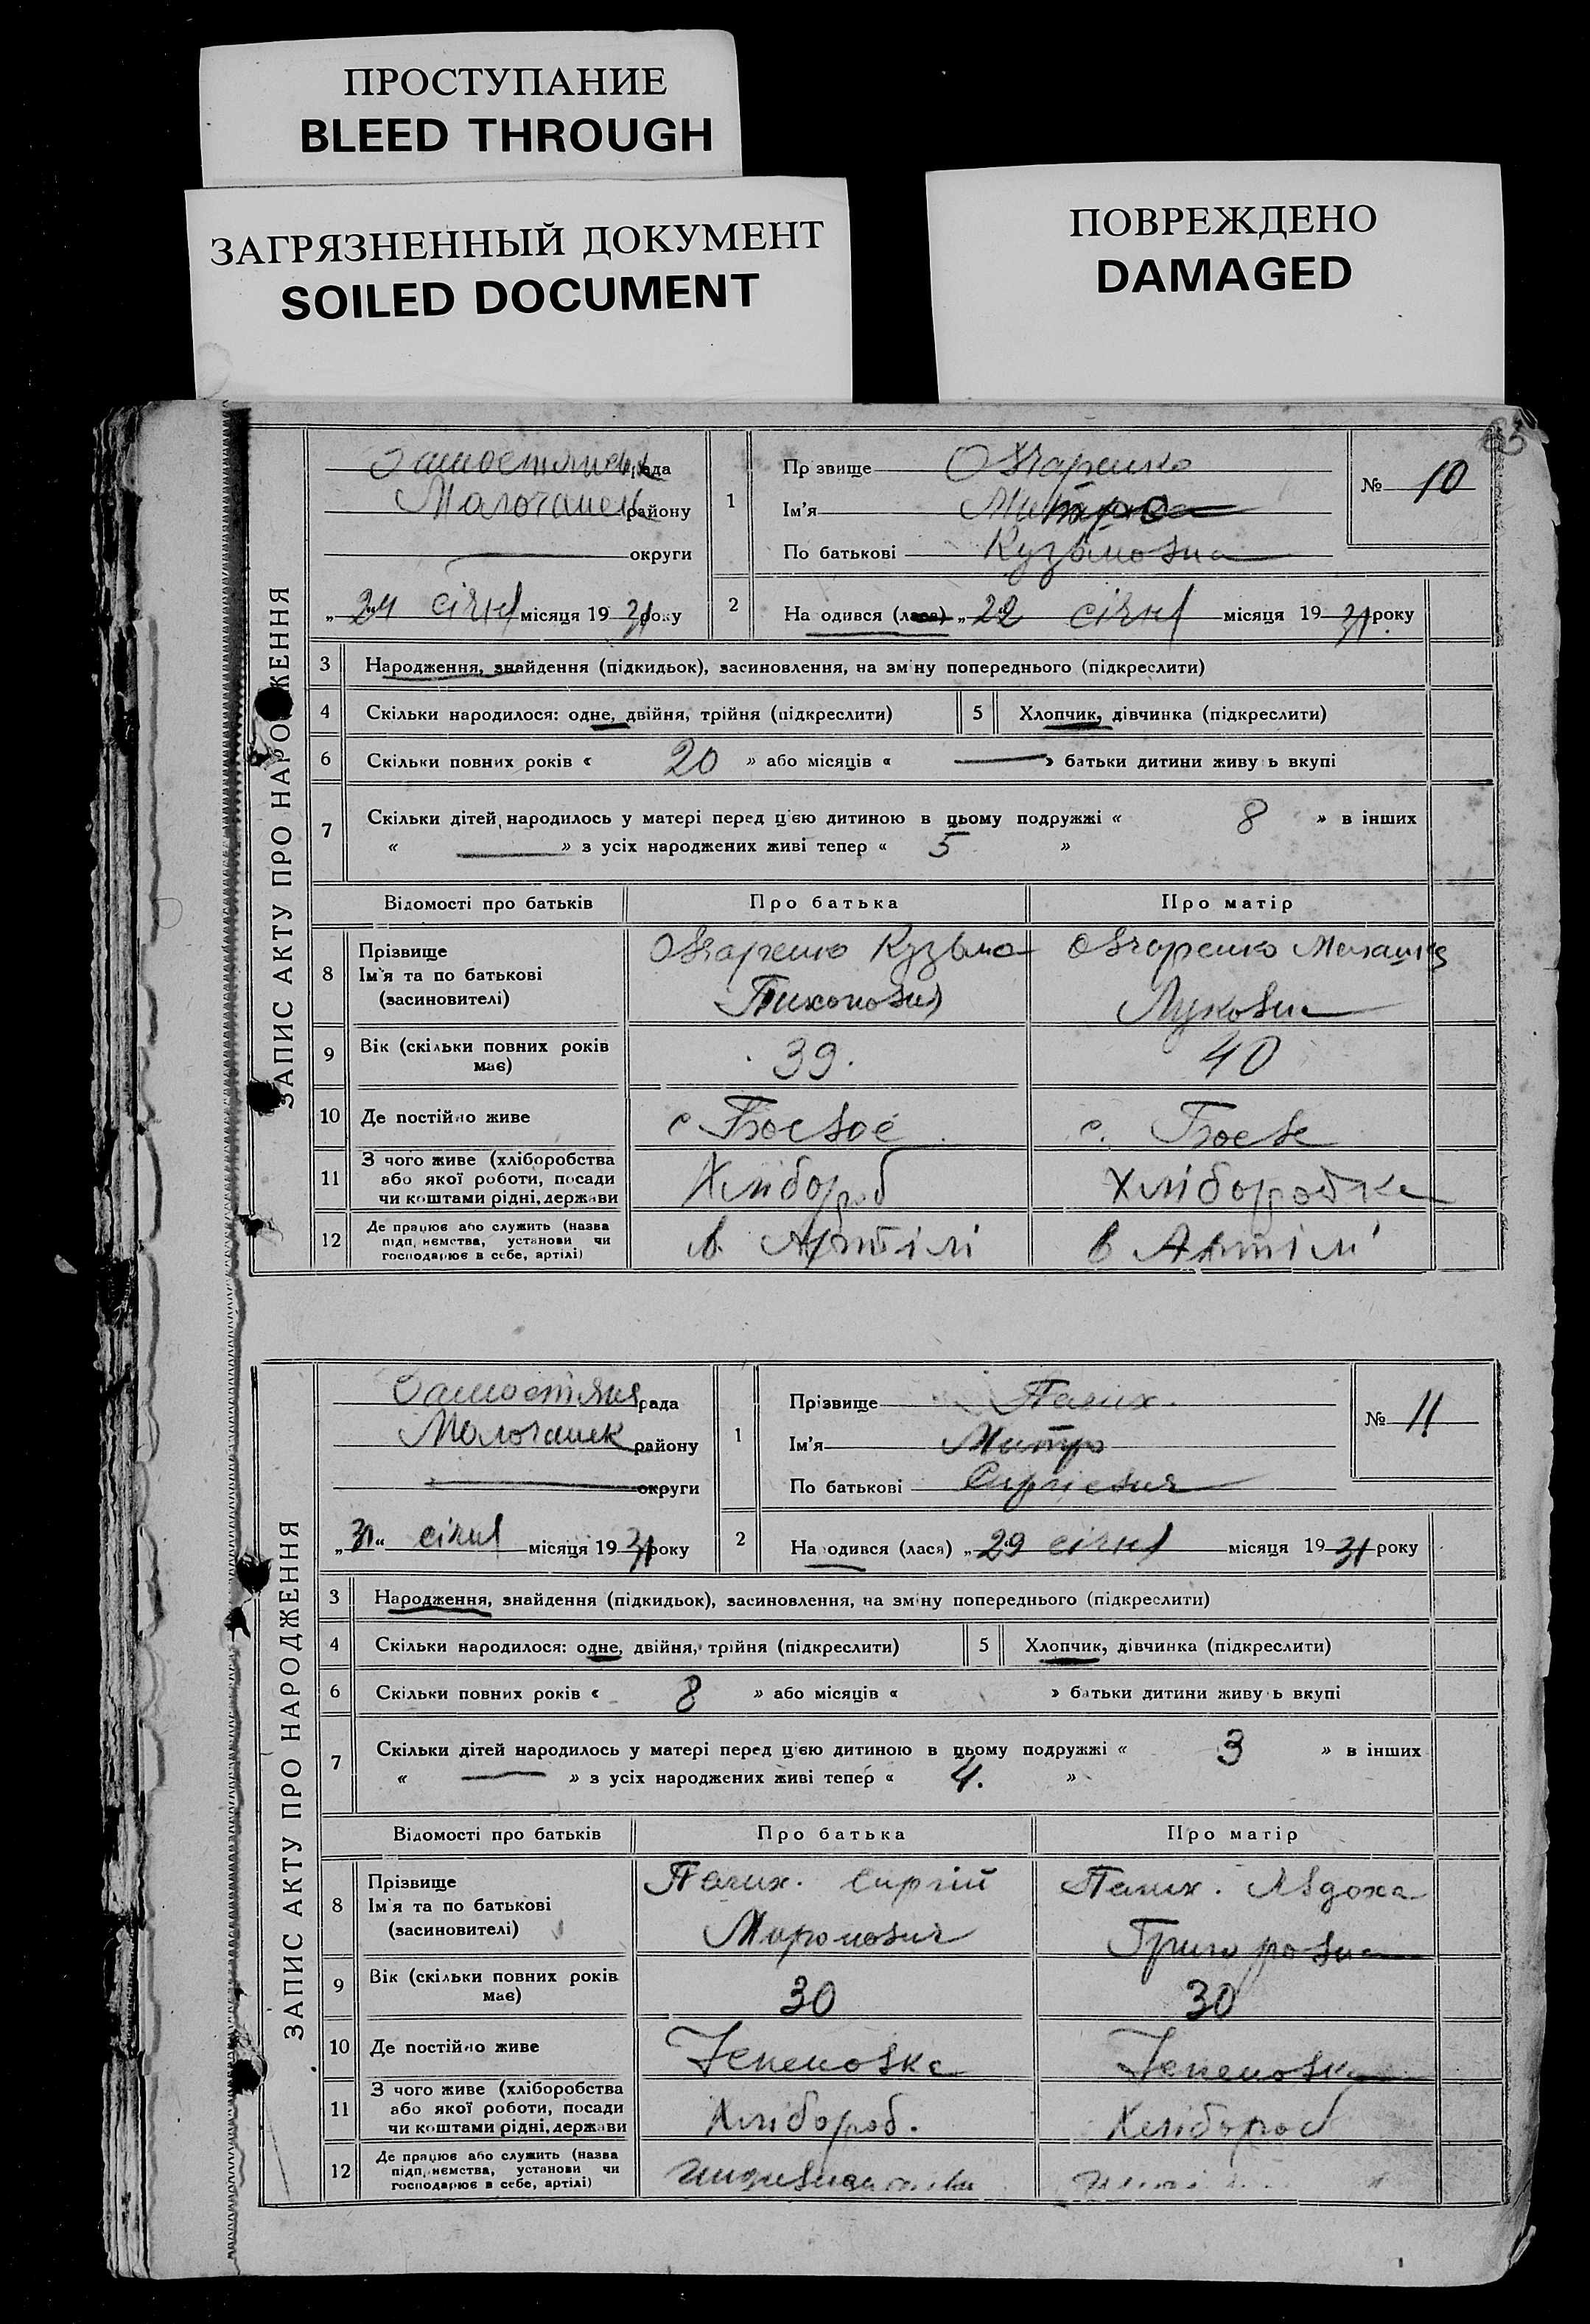 ПРОСТУПАНИЕ
BLEED THROUGH
ЗАГРЯЗНЕННЫЙ ДОКУМЕНТ
SOILED DOCUMENT
ПОВРЕЖДЕНО
DAMAGED
ЗАПИС АКТУ ПРО НАРОДЖЕННЯ
рада
району
округи
„24 січня місяця 1931 року
1 Прізвище Овчаренко
Ім'я Митро
По батькові Кузьмовна
№ 10
2 Народився (лася) „22 січня місяця 1931 року
3 Народження, знайдення (підкидьок), засиновлення, на зміну попереднього (підкреслити)
4 Скільки народилося: одне, двійня, трійня (підкреслити) 5 Хлопчик, дівчинка (підкреслити)
6 Скільки повних років « 20 » або місяців « — » батьки дитини живуть вкупі
7 Скільки дітей народилось у матері перед цією дитиною в цьому подружжі « 8 » в інших
« — » з усіх народжених живі тепер « 5 »
Відомості про батьків Про батька Про матір
8 Прізвище Овчаренко Кузьма Овчаренко
Ім'я та по батькові
(засиновителі) Тихонович Луковна
9 Вік (скільки повних років має) 39. 40
10 Де постійно живе с.
11 З чого живе (хліборобства
або якої роботи, посади Хлібороб Хлiборобка
чи коштами рідні, держави
12 Де працює або служить (назва
підприємства, установи чи в Артілі в Артілі
господарює в себе, артілі)
ЗАПИС АКТУ ПРО НАРОДЖЕННЯ
рада
Молочанск району
округи
„31" січня місяця 1931 року
1 Прізвище Палих.
Ім'я Митро
По батькові Сиргієвич
№ 11
2 Народився (лася) „29 січня місяця 1931 року
3 Народження, знайдення (підкидьок), засиновлення, на зміну попереднього (підкреслити)
4 Скільки народилося: одне, двійня, трійня (підкреслити) 5 Хлопчик, дівчинка (підкреслити)
6 Скільки повних років « 8 » або місяців « » батьки дитини живуть вкупі
7 Скільки дітей народилось у матері перед цією дитиною в цьому подружжі « 3 » в інших
« — » з усіх народжених живі тепер « 4. »
Відомості про батьків Про батька Про матір
8 Прізвище Палих. Сиргій Палих. Авдоха
Ім'я та по батькові
(засиновителі) Миронович Григоровна
9 Вік (скільки повних років має) 30 30
10 Де постійно живе
11 З чого живе (хліборобства
або якої роботи, посади Хлібороб. Хлібороб
чи коштами рідні, держави
12 Де працює або служить (назва
підприємства, установи чи
господарює в себе, артілі)